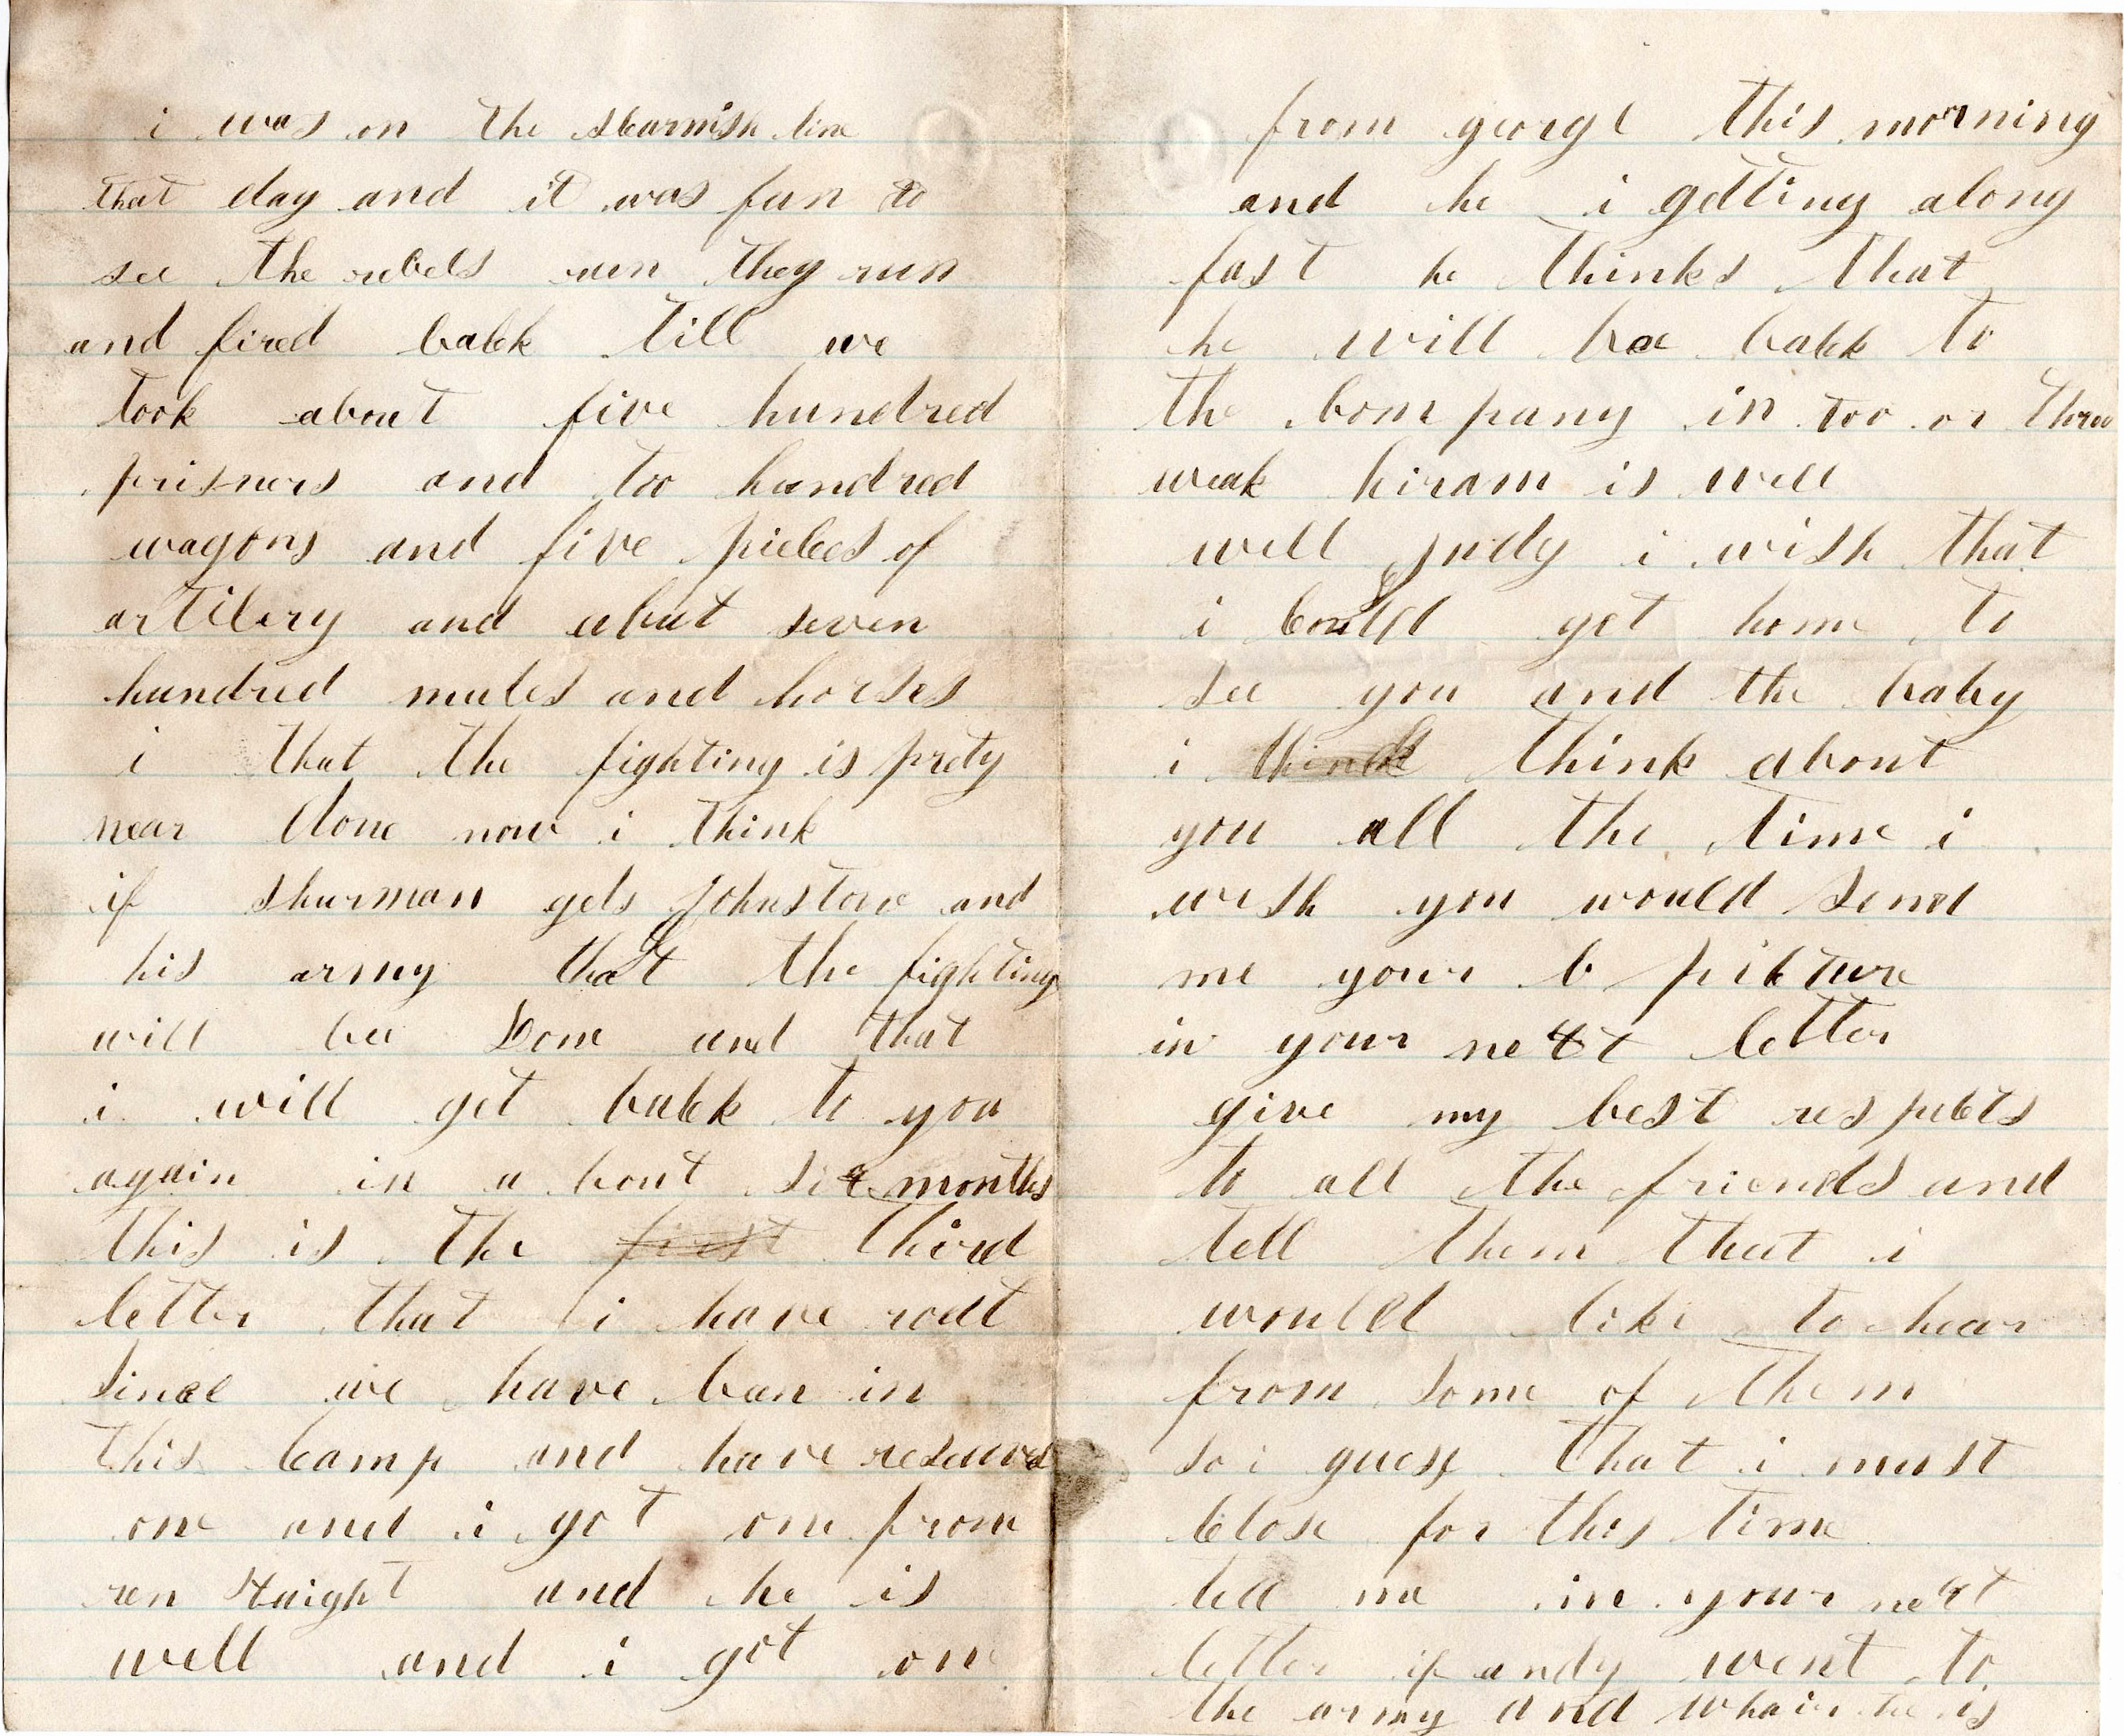 i was on the skarmish line
that day and it was fun to
see the rebels run they run
and fired back till we
took about five hundred
prisners and too hundred
wagons and five pieces of
artilery and abut seven
hundred mules and horses
i that the fighting is prety
near done now i think
if shurman gets Johnstone and
his army that the fighting
will be done and that
i will get back to you
again in a bout six months
this is the first third
letter that i have rout
since we have ban in
this camp and have reseved
one and i got one from
ren Haight and he is
well and i got one
from george this morning
and he i getting along
fast he thinks that
he will be back to
the company in too or three
weak hiram is well
well Judy i wish that
i could get home to
see you and the baby
i think think about
you all the time i
wish you would send
me your c picture
in your next letter
give my best respects
to all the friends and
tell them that i
would like to hear
from some of them
so i guess that i must
close for this time
tell me in your next
letter if andy went to
the army and whair he is